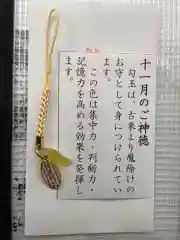 十一月のご神徳
勾玉は、古来より魔除けの
お守として身につけられてい
ます。
この色は集中力・判断力・
記憶力を高める効果を発揮し
ます。